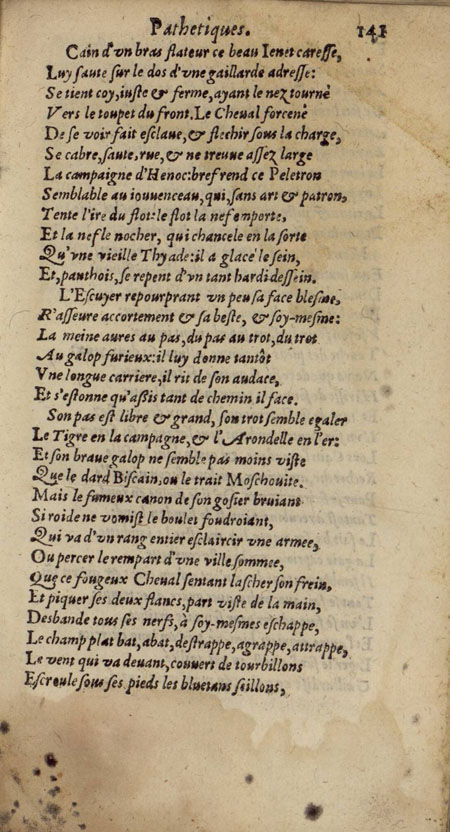 Pathetiques. 141
Cain d'vn bras flateur ce beau Ienet caresse,
Luy saute sur le dos d'vne gaillarde adresse:
Se tient coy, iuste & ferme, ayant le nez tourné
Vers le toupet du front. Le Cheual forcené
De se voir fait esclaue, & flechir sous la charge,
Se cabre, saute, rue, & ne treuue assez large
La campagne d'Henoc: bref rend ce Peletron
Semblable au iouuenceau, qui, sans art & patron,
Tente l'ire du flot: le flot la nef emporte,
Et la nef le nocher, qui chancele en la sorte
Qu'vne vieille Thyade: il a glacé le sein,
Et, pauthois, se repent d'vn tant hardi dessein.
L'Escuyer repourprant vn peu sa face blesme,
R'asseure accortement & sa beste, & soy-mesme:
La meine aures au pas, du pas au trot, du trot
Au galop furieux: il luy donne tantôt
Vne longue carriere, il rit de son audace,
Et s'estonne qu'assis tant de chemin il face.
Son pas est libre & grand, son trot semble egaler
Le Tigre en la campagne, & l'Arondelle en l'er:
Et son braue galop ne semble pas moins viste
Que le dard Biscain, ou le trait Moschouite.
Mais le fumeux canon de son gosier bruiant
Si roide ne vomist le boulet foudroiant,
Qui va d'vn rang entier esclaircir vne armee,
Ou percer le rempart d'vne ville sommee,
Que ce fougeux Cheual sentant lascher son frein,
Et piquer ses deux flancs, part viste de la main,
Desbande tous ses nerfs, à soy-mesmes eschappe,
Le champ plat bat, abat, destrappe, agrappe, attrappe,
Le vent qui va deuant, couuert de tourbillons
Escroule sous ses pieds les bluetans seillons,